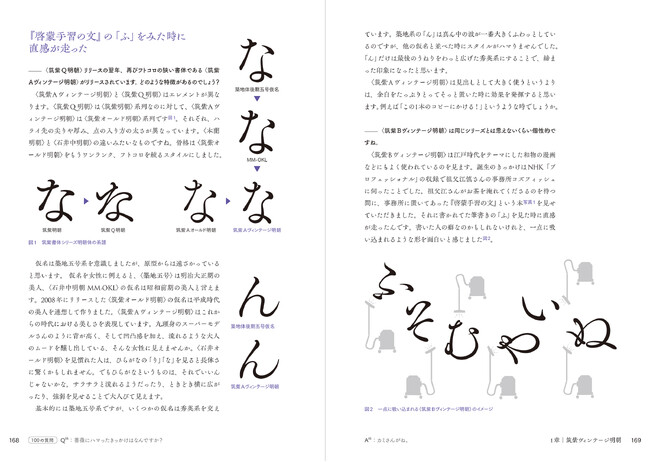 『啓蒙手習の文』の「ふ」をみた時に
直感が走った
―― 〈筑紫Q明朝〉リリースの翌年、再びフトコロの狭い書体である〈筑紫
Aヴィンテージ明朝〉がリリースされています。どのような特徴があるのでしょう?
〈筑紫Aヴィンテージ明朝〉と〈筑紫Q明朝〉はエレメントが異な
ります。〈筑紫Q明朝〉は〈筑紫明朝〉系列なのに対して、〈筑紫Aヴ
ィンテージ明朝〉は〈筑紫オールド明朝〉系列です図1。それぞれ、ハ
ライ先の尖りや厚み、点の入り方の太さが異なっています。〈本蘭
明朝〉と〈石井中明朝〉の違いみたいなものですね。骨格は〈筑紫オ
ールド明朝〉をもうワンランク、フトコロを絞るスタイルにしました。
な
築地体後期五号仮名
な
MM-OKL
な な な な
筑紫明朝 筑紫Q明朝 筑紫Aオールド明朝 筑紫Aヴィンテージ明朝
図1 筑紫書体シリーズ明朝体の系譜
仮名は築地五号系を意識しましたが、原型からは遠ざかっている
と思います。 仮名を女性に例えると、〈築地五号〉は明治大正期の
美人、〈石井中明朝 MM-OKL〉の仮名は昭和前期の美人と言えま
す。2008年にリリースした〈筑紫オールド明朝〉の仮名は平成時代
の美人を連想して作りました。〈筑紫Aヴィンテージ明朝〉はこれか
らの時代における美しさを表現しています。九頭身のスーパーモデ
ルさんのように背が高く、そして凹凸感を加え、流れるような大人
のムードを醸し出している、そんな女性に見えませんか。〈石井オ
ールド明朝〉を見慣れた人は、ひらがなの「り」「な」を見ると長体さ
に驚くかもしれません。でもひらがなというものは、それでいいん
じゃないかな。サラサラと流れるようだったり、ときとき横に広が
ったり、強弱を見せることで大人びて見えます。
基本的には築地五号系ですが、いくつかの仮名は秀英系を交え
ん
築地体後期五号仮名
ん
筑紫Aヴィンテージ明朝
168 100の質問 Q78:薔薇にハマったきっかけはなんですか?
ています。築地系の「ん」は真ん中の波が一番大きくふわっとしてい
るのですが、他の仮名と並べた時にスタイルがハマりませんでした。
「ん」だけは最後のうねりをわっと広げた秀英系にすることで、締ま
った印象になったと思います。
〈筑紫Aヴィンテージ明朝〉は見出しとして大きく使うというより
は、余白をたっぷりとってそっと置いた時に効果を発揮すると思い
ます。例えば「この1本のコピーにかける!」というような時でしょうか。
―― 〈筑紫Bヴィンテージ明朝〉は同じシリーズとは思えないくらい個性的で
すね。
〈筑紫Bヴィンテージ明朝〉は江戸時代をテーマにした和物の漫画
などにもよく使われているのを見ます。誕生のきっかけはNHK「プ
ロフェッショナル」の収録で祖父江慎さんの事務所コズフィッシュ
に伺ったことでした。祖父江さんがお茶を淹れてくださるのを待つ
間に、事務所に置いてあった『啓蒙手習の文』という本写真1を見せ
ていただきました。それに書かれていた筆書きの「ふ」を見た時に直感
が走ったんです。書いた人の癖なのかもしれないけれど、一点に吸
い込まれるような形を面白いと感じました図2。
ふ そ む や い ぬ
図2 一点に吸い込まれる〈筑紫Bヴィンテージ明朝〉のイメージ
1章 筑紫ヴィンテージ明朝 169